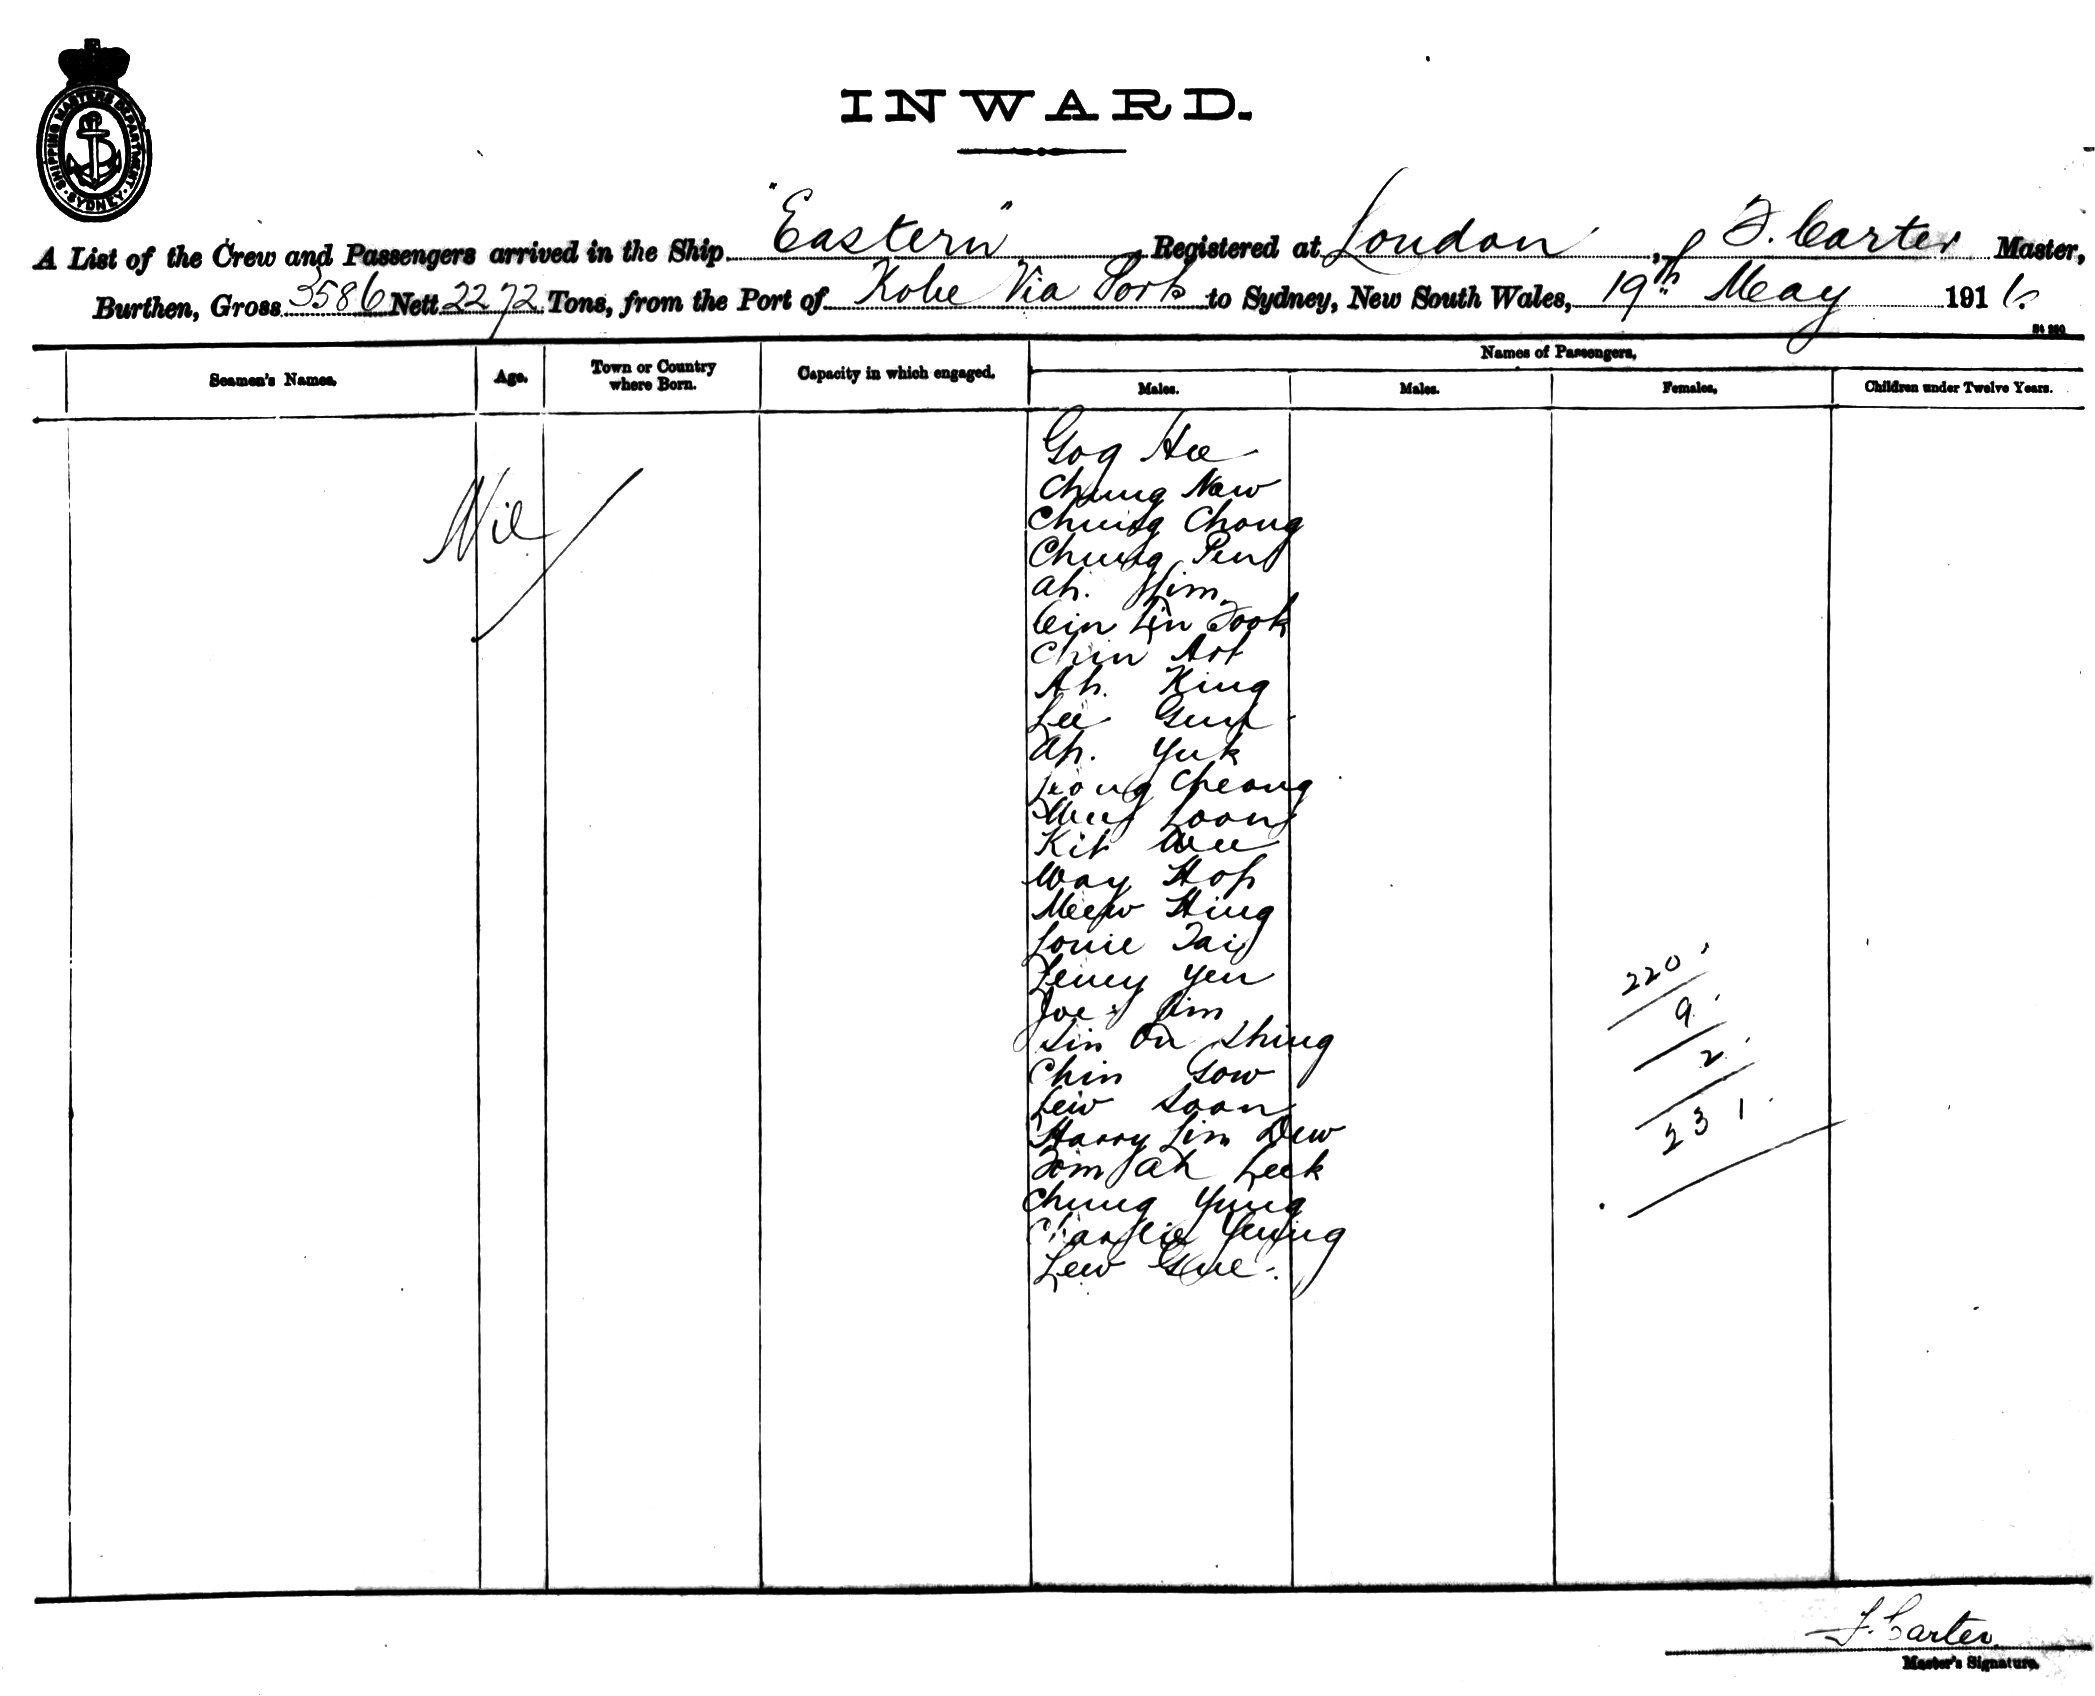 SHIPPING MASTERS DEPARTMENT · SYDNEY ·
INWARD.
A List of the Crew and Passengers arrived in the Ship "Eastern" Registered at London, F. Carter Master,
Burthen, Gross 3586 Nett 2272 Tons, from the Port of Kobe Via Ports to Sydney, New South Wales, 19th May 1916.
Seamen's Names. Age. Town or Country where Born. Capacity in which engaged. Names of Passengers.
Males. Males. Females. Children under Twelve Years.
Nil
Hee
Chung New
Chung Chong
Chung
Ah. Him
Fook
Chin
Ah. King
Lee
Ah. Yuk
Leong Cheong
Loong
Kit
Way Hop
Hing
Louie Tai
Yen
Joe Jim
Sin On Shing
Chin Gow
Lew Soon
Harry Lim Dew
Tom Ah Leek
Chung Yung
Charlie Yung
Lew Gue
220
9
2
231
F. Carter
Master's Signature.